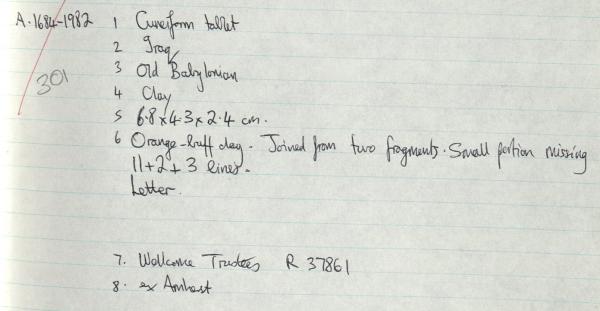 A.1684-1982 1 Cuneiform tablet
2 Iraq
301
3 Old Babylonian
4 Clay
5 6.8 x 4.3 x 2.4 cm.
6 Orange-buff clay. Joined from two fragments. Small portion missing
11+2+3 lines.
Letter.
7. Wellcome Trustees R 37861
8. ex Amherst